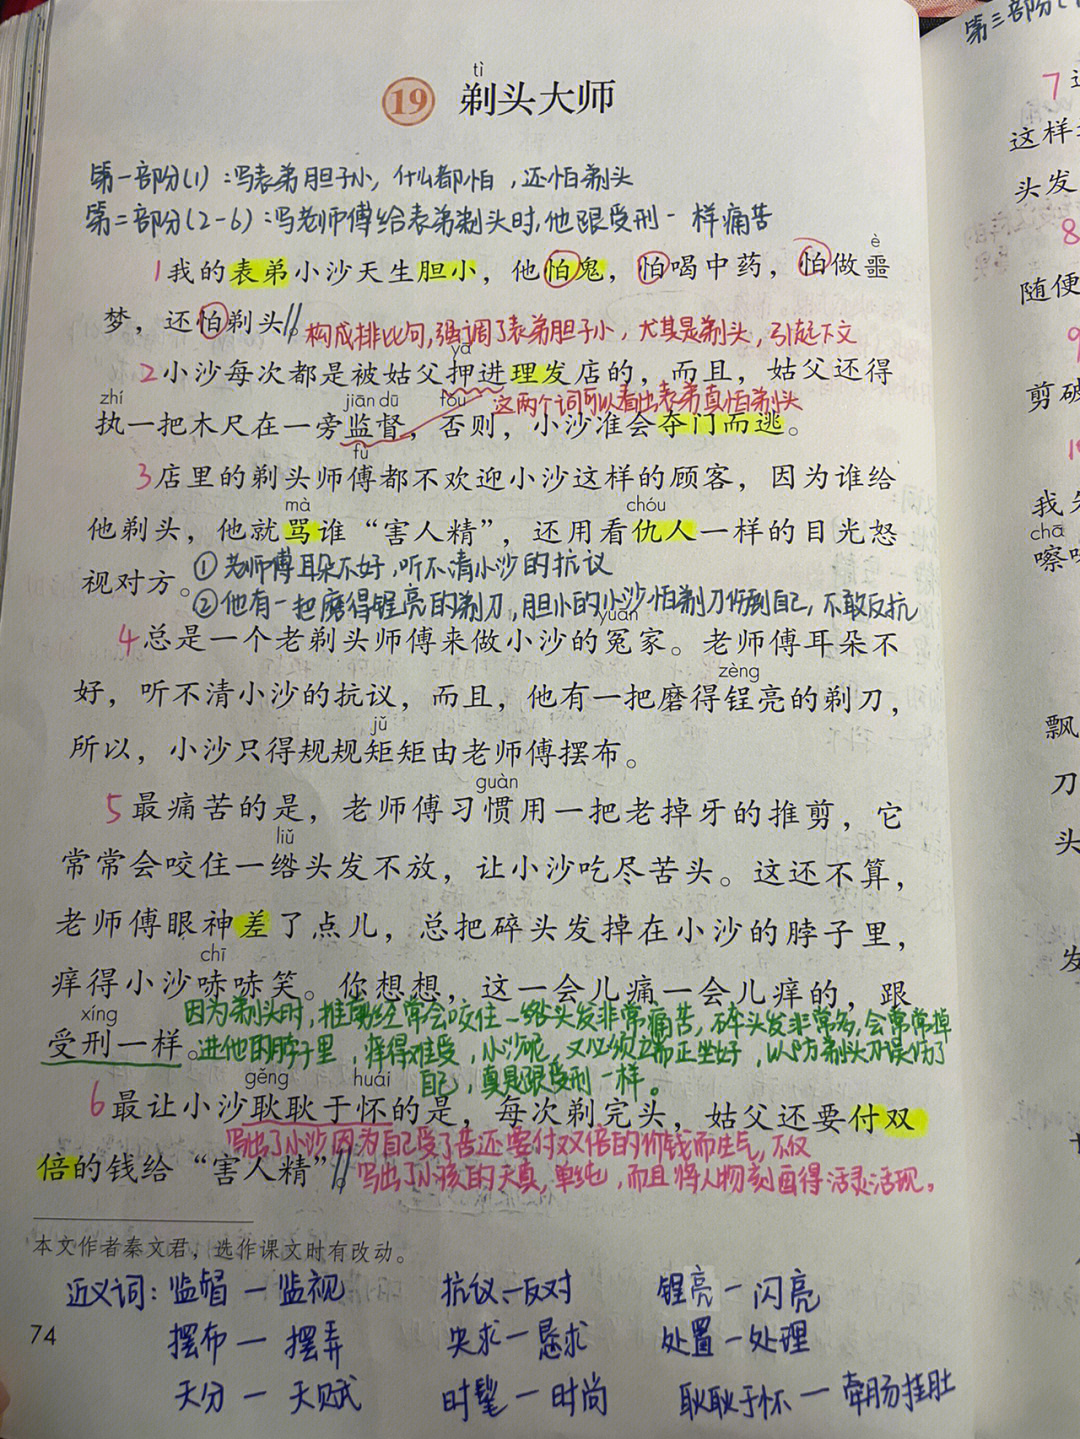 第三部分(
tì
19 剃头大师
第一部分(1)：写表弟胆子小，什么都怕，还怕剃头
第二部分(2-6)：写老师傅给表弟剃头时，他跟受刑一样痛苦
è
1我的表弟小沙天生胆小，他怕鬼，怕喝中药，怕做噩
梦，还怕剃头。//
构成排比句，强调了表弟胆子小，尤其是剃头，引起下文
yā
2小沙每次都是被姑父押进理发店的，而且，姑父还得
这两个词可以看出表弟真怕剃头
zhí jiān dū fǒu
执一把木尺在一旁监督，否则，小沙准会夺门而逃。
fu
3店里的剃头师傅都不欢迎小沙这样的顾客，因为谁给
mà chóu
他剃头，他就骂谁“害人精”，还用看仇人一样的目光怒
视对方。
①老师傅耳朵不好，听不清小沙的抗议
②他有一把磨得锃亮的剃刀，胆小的小沙怕剃刀伤到自己，不敢反抗
yuān
4总是一个老剃头师傅来做小沙的冤家。老师傅耳朵不
zèng
好，听不清小沙的抗议，而且，他有一把磨得锃亮的剃刀，
jǔ
所以，小沙只得规规矩矩由老师傅摆布。
guàn
5最痛苦的是，老师傅习惯用一把老掉牙的推剪，它
liǔ
常常会咬住一绺头发不放，让小沙吃尽苦头。这还不算，
老师傅眼神差了点儿，总把碎头发掉在小沙的脖子里，
chī
痒得小沙哧哧笑。你想想，这一会儿痛一会儿痒的，跟
xíng
受刑一样。
因为剃头时，推剪经常会咬住一绺头发非常痛苦，碎头发非常多，会常常掉
进他的脖子里，痒得难受，小沙呢，又必须立而正坐好，以防剃头刀误伤了
自己，真是跟受刑一样。
gěng huái
6最让小沙耿耿于怀的是，每次剃完头，姑父还要付双
写出了小沙因为自己受了苦还要付双倍的价钱而生气，不仅
倍的钱给“害人精”。//
写出了小孩的天真，单纯，而且将人物刻画得活灵活现。
本文作者秦文君，选作课文时有改动。
近义词：监督—监视 抗议—反对 锃亮—闪亮
74
摆布—摆弄 央求—恳求 处置—处理
天分—天赋 时髦—时尚 耿耿于怀—牵肠挂肚
7
这样
头发
8
随便
9
剪破
我
chā
嚓
飘
刀
头
发